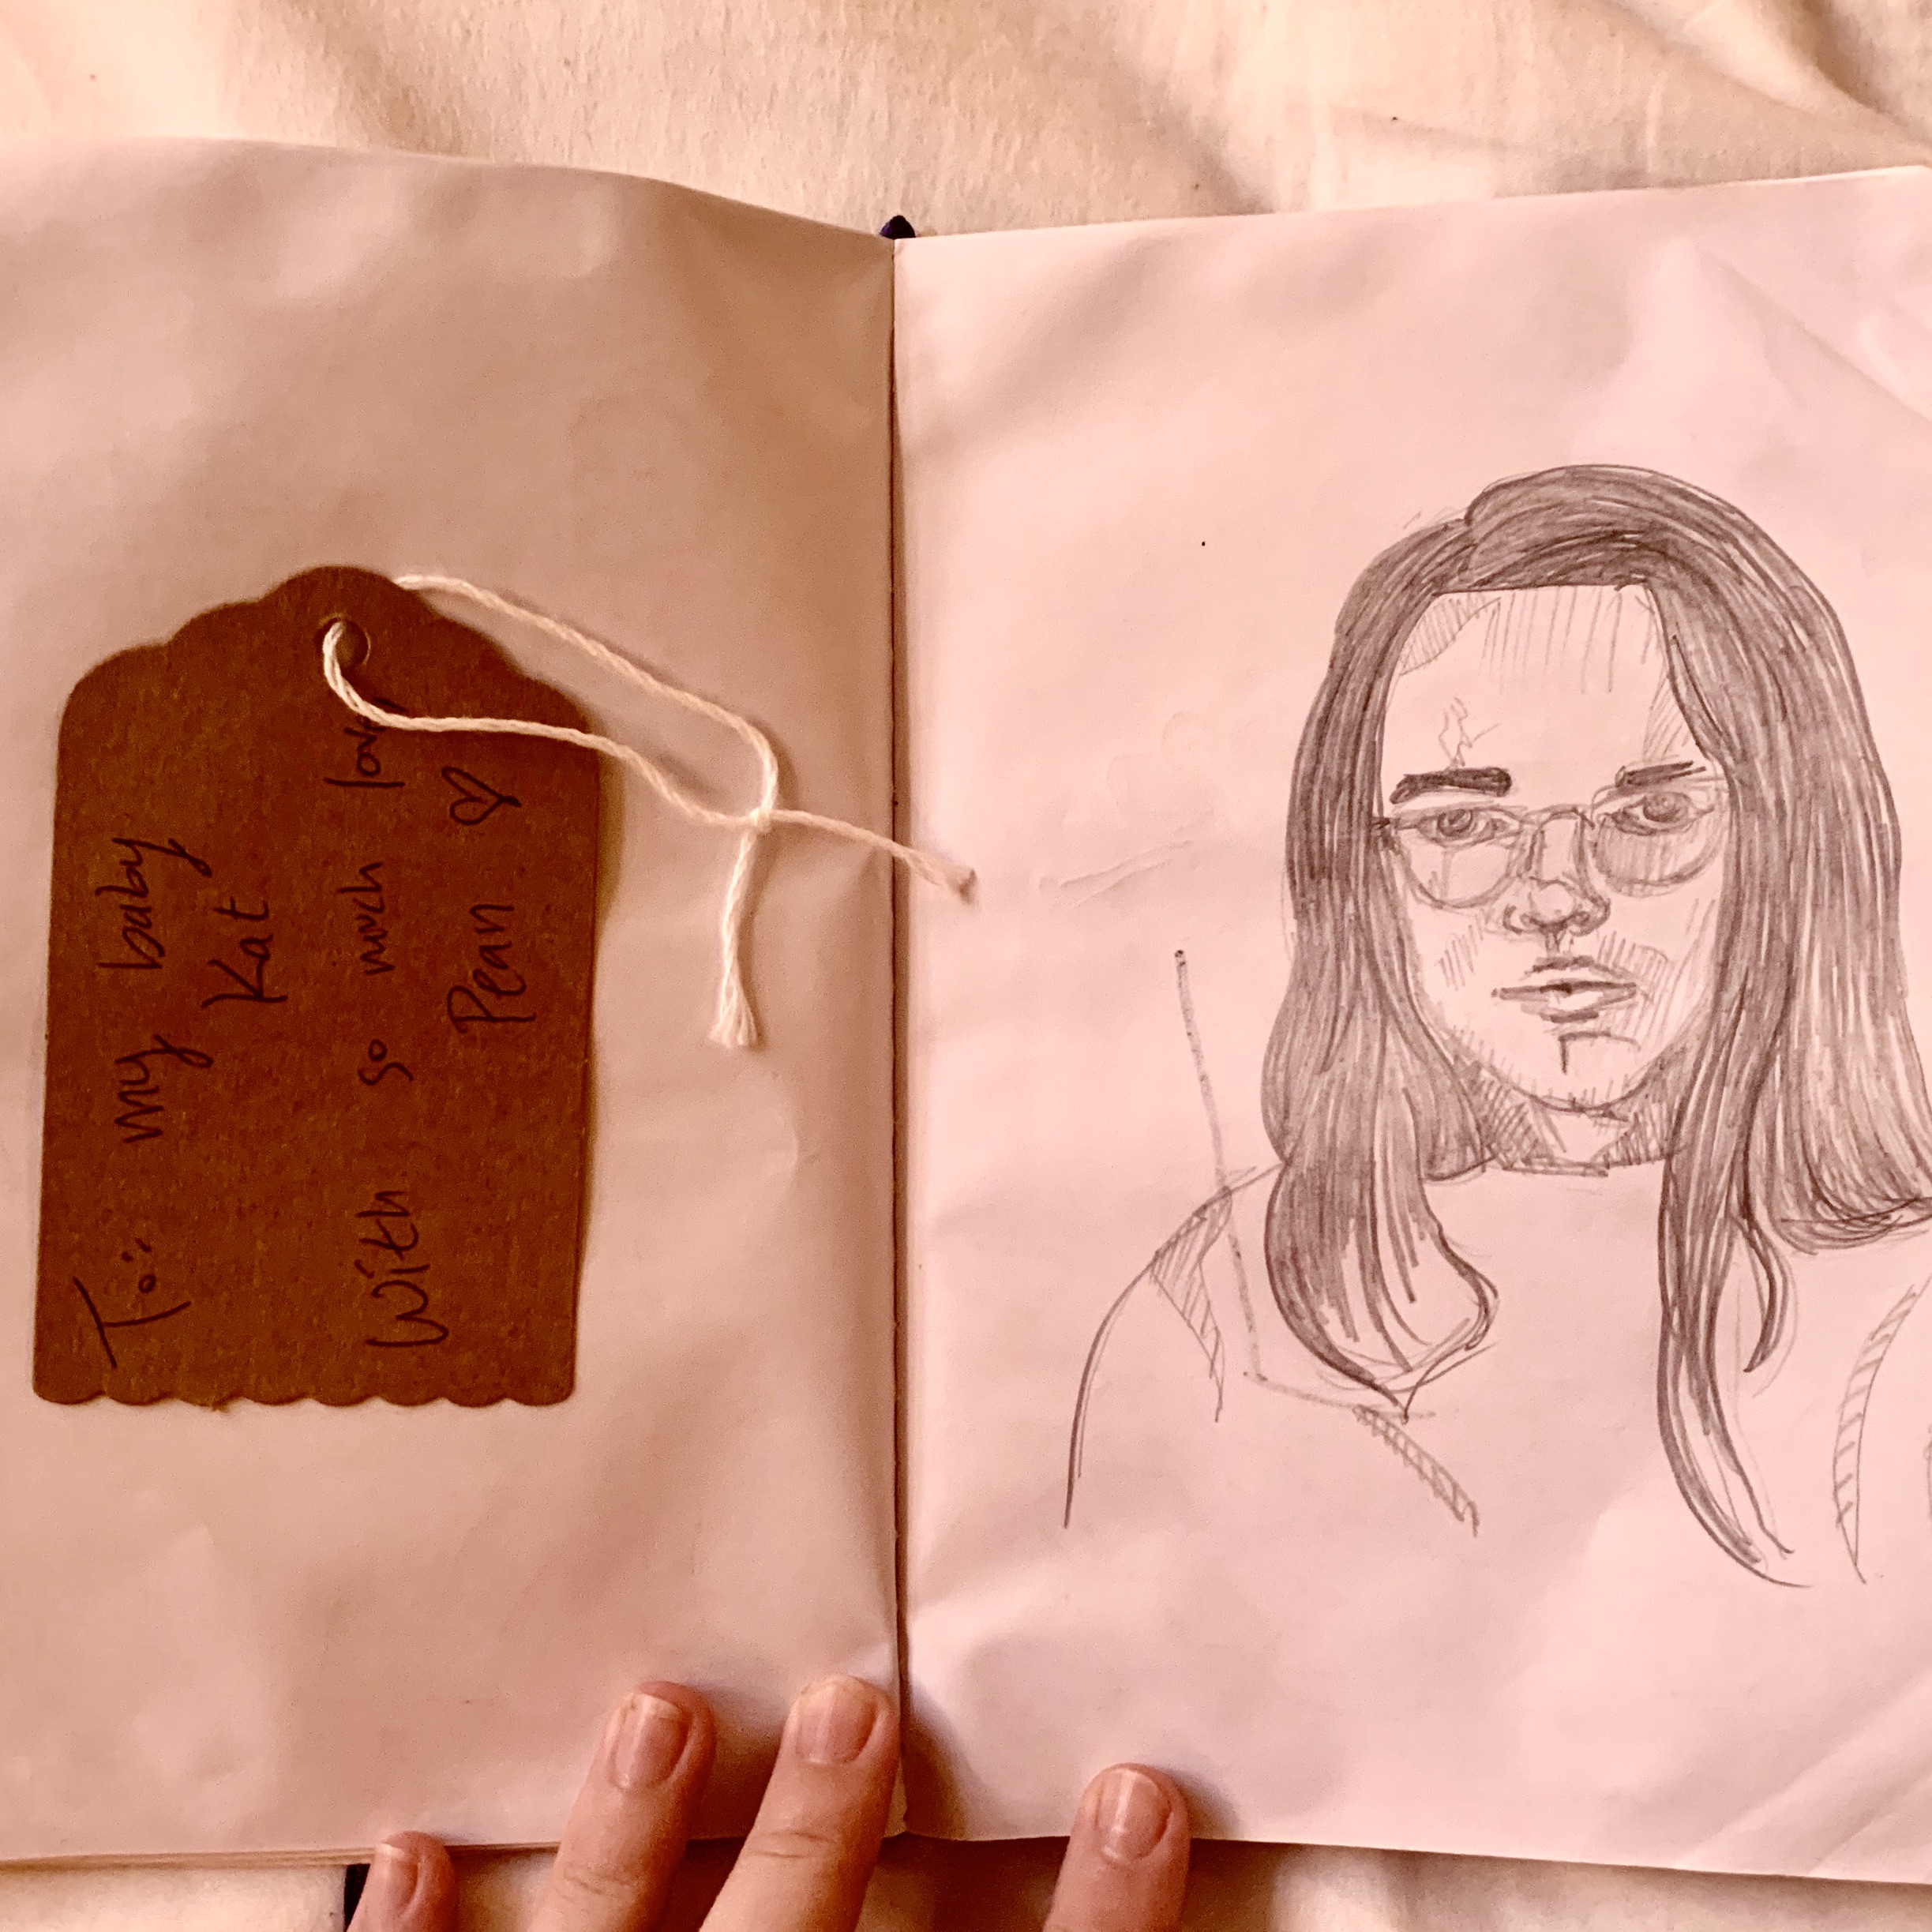 To: my baby
Kat
With so much love,
Pean ♡